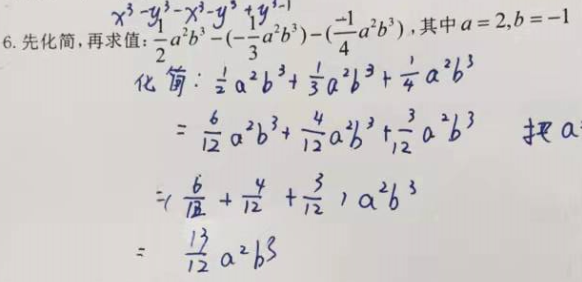 x³-y³-x³-y³+y³-1
6. 先化简,再求值: \frac{1}{2}a²b³-(-\frac{1}{3}a²b³)-(\frac{-1}{4}a²b³),其中a=2,b=-1
化简: \frac{1}{2}a²b³+\frac{1}{3}a²b³+\frac{1}{4}a²b³
=\frac{6}{12}a²b³+\frac{4}{12}a²b³+\frac{3}{12}a²b³ 把a
=(\frac{6}{12}+\frac{4}{12}+\frac{3}{12})a²b³
=\frac{13}{12}a²b³